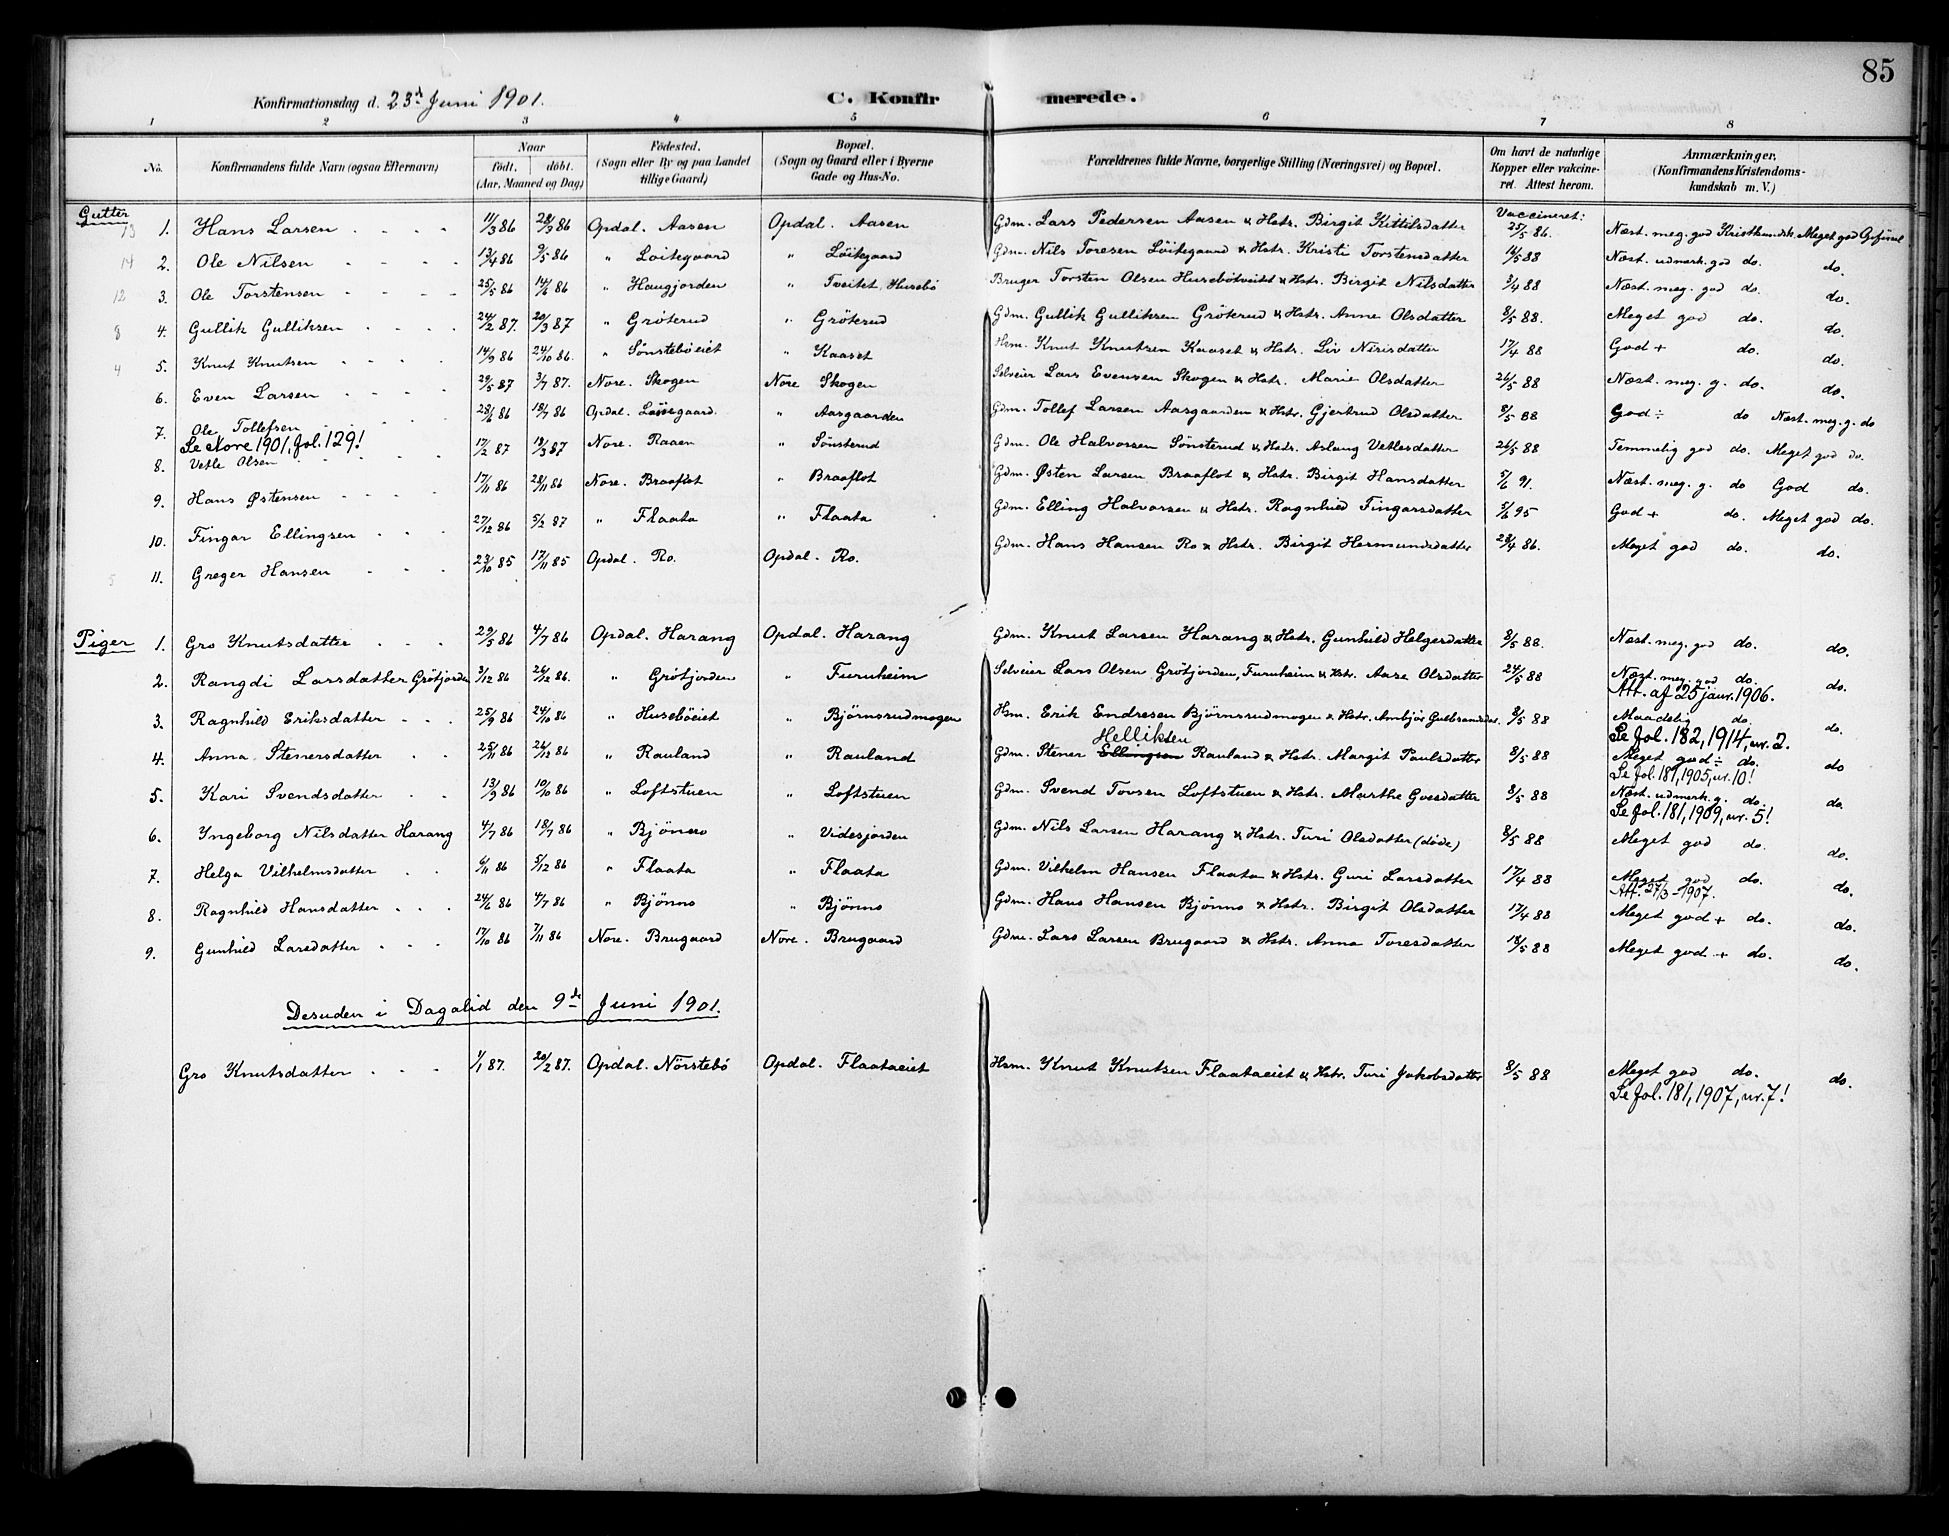 85
Konfirmationsdag d. 23d Juni 1901.
C. Konfirmerede.
1 2 3 4 5 6 7 8
No. Konfirmandens fulde Navn (ogsaa Efternavn) Naar født. døbt. (Aar, Maaned og Dag) Fødested. (Sogn eller By og paa Landet tillige Gaard) Bopæl. (Sogn og Gaard eller i Byerne Gade og Hus-No. Forældrenes fulde Navne, borgerlige Stilling (Næringsvei) og Bopæl. Om havt de naturlige Kopper eller vakcineret. Attest herom. Anmærkninger. (Konfirmandens Kristendomskundskab m. V.)
Gutter
Vaccineret:
13 1. Hans Larsen 11/3 86 28/3 86 Opdal. Aasen Opdal. Aasen Gdm. Lars Pedersen Aasen & Hstr. Birgit Kittilsdatter 25/5 86. Næst. meg. god Kristkundsk. Meget god
14 2. Ole Nilsen 13/4 86 9/5 86 " Löitegaard " Löitegaard Gdm. Nils Toresen Löitegaard & Hstr. Kristi Torstensdatter 16/5 88 Næst. udmerk. god do. do.
12 3. Ole Torstensen 25/5 86 14/6 86 " Haugjorden " Tveitet, Husebö Bruger Torsten Olsen Husebötveitet & Hstr. Birgit Nilsdatter 3/4 88 Næst. meg. god do. do.
8 4. Gullik Gulliksen 24/2 87. 20/3 87 " Gröterud " Gröterud Gdm. Gullik Gulliksen Gröterud & Hstr. Anne Olsdatter 8/5 88. Meget god do. do.
4 5. Knut Knutsen 14/9 86 24/10 86. " Sönsteböeiet " Kaaset Hsm. Knut Knutsen Kaaset & Hstr. Liv Nirisdatter 17/4 88 God + do. do.
6. Even Larsen 29/5 87 3/7 87. Nore. Skogen Nore Skogen Selveier Lars Evensen Skogen & Hstr. Marie Olsdatter 26/5 88 Næst. meg. g. do. do.
7. Ole Tollefsen 28/6 86 18/7 86 Opdal. Löisgaard. " Aasgaarden Gdm. Tollef Larsen Aasgaarden & Hstr. Gjertrud Olsdatter 8/5 88 God ÷ do Næst. meg. g. do
Se Nore 1901, fol. 129!
8. Vetle Olsen 17/2 87 13/3 87 Nore. Raaen " Sönsterud Gdm. Ole Halvorsen Sönsterud & Hstr. Aslaug Vetlesdatter 26/5 88 Temmelig god do. Meget god do.
9. Hans Østensen 17/11 86 28/11 86 Nore. Braaflot " Braaflot Gdm. Østen Larsen Braaflot & Hstr. Birgit Hansdatter 5/6 91. Næst. meg. g. do God do.
10. Fingar Ellingsen 27/12 86 5/2 87 " Flaata " Flaata Gdm. Elling Halvorsen & Hstr. Ragnhild Fingarsdatter 5/6 95 God + do. Meget god do.
5 11. Greger Hansen 23/10 85 17/11 85 Opdal. Ro. Opdal. Ro. Gdm. Hans Hansen Ro & Hstr. Birgit Hermundsdatter 28/4 86. Meget god do. do.
Piger 1. Gro Knutsdatter 29/5 86 4/7 86 Opdal. Harang Opdal. Harang Gdm. Knut Larsen Harang & Hstr. Gunhild Helgesdatter 8/5 88. Næst. meg. god do. do.
2. Rangdi Larsdatter Grötjorden 3/12 86 26/12 86. " Grötjorden " Furuheim Selveier Lars Olsen Grötjorden, Furuheim & Hstr. Aase Olsdatter 24/5 88 Næst. meg. god do. do.
Att. af 25 janr. 1906.
3. Ragnhild Eriksdatter 25/9 86 24/10 86 " Huseböeiet " Björnsrudmogen Hsm. Erik Endresen Björnsrudmogen & Hstr. Ambjör Gulbrandsdtr. 8/5 88 Maadelig do. do.
Se fol. 182, 1914, nr. 2.
Helliksen
4. Anna Stenersdatter 25/11 86 26/12 86 " Rauland " Rauland Gdm. Stener Ellingsen Rauland & Hstr. Margit Paulsdatter 8/5 88 Meget god ÷ do. do
Se fol. 181, 1905, nr. 10!
5. Kari Svendsdatter 13/9 86 10/10 86 " Loftstuen " Loftstuen Gdm. Svend Tovsen Loftstuen & Hstr. Marthe Goesdatter 8/5 88 Næst. udmerk. g. do. do.
Se fol. 181, 1909, nr. 5!
6. Ingeborg Nilsdatter Harang 4/7 86 18/7 86 " Bjönno " Videsjorden Gdm. Nils Larsen Harang & Hstr. Turi Olsdatter (døde) 8/5 88 Meget god do. do.
7. Helga Vilhelmsdatter 4/11 86 5/12 86 " Flaata " Flaata Gdm. Vilhelm Hansen Flaata & Hstr. Guri Larsdatter 17/4 88 Meget god do. do.
Att. 27/3 - 1907.
8. Ragnhild Hansdatter 24/6 86 4/7 86 " Bjönno " Bjönno Gdm. Hans Hansen Bjönno & Hstr. Birgit Olsdatter 17/4 88 Meget god + do. do.
9. Gunhild Larsdatter 17/10 86 7/11 86 Nore. Brugaard Nore. Brugaard Gdm. Lars Larsen Brugaard & Hstr. Anna Toresdatter 18/5 88 Meget god + do. do.
Desuden i Dagalid den 9de Juni 1901.
Gro Knutsdatter 1/1 87. 20/2 87. Opdal. Nörstebö Opdal. Flaataeiet Hsm. Knut Knutsen Flaataeiet & Hstr. Turi Jakobsdatter 8/5 88 Meget god do. do.
Se fol. 181, 1907, nr. 7!